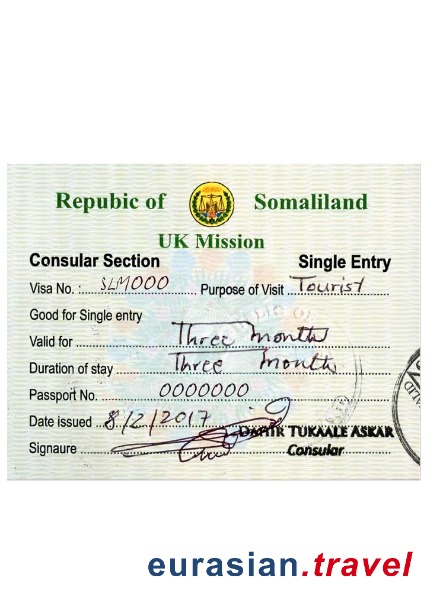 Repubic of Somaliland
UK Mission
Consular Section Single Entry
Visa No. : SLM000 Purpose of Visit Tourist
Good for Single entry
Valid for Three Month
Duration of stay Three Month
Passport No. 0000000
Date issued 8/2/2017
Signaure DAHIR TUKAALE ASKAR
Consular
eurasian.travel